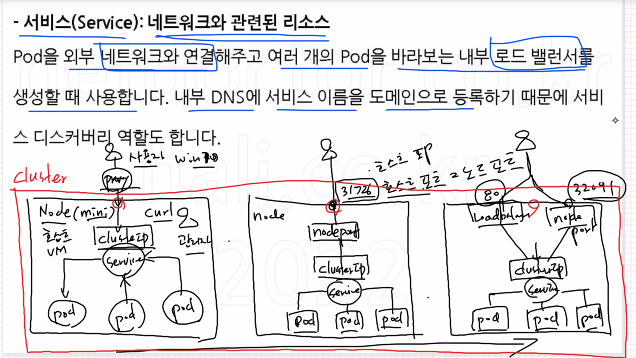 - 서비스(Service): 네트워크와 관련된 리소스
Pod을 외부 네트워크와 연결해주고 여러 개의 Pod을 바라보는 내부 로드 밸런서를
생성할 때 사용합니다. 내부 DNS에 서비스 이름을 도메인으로 등록하기 때문에 서비
스 디스커버리 역할도 합니다.
사용자 win
호스트 IP
호스트 포트 = 노드포트
cluster
proxy
31726
80
32091
Node(mini)
curl
호스트
VM
clusterIP
관리자
service
pod
pod
pod
node
nodeport
clusterIP
service
pod
pod
pod
Loadbalancer
node
port
clusterIP
service
pod
pod
pod